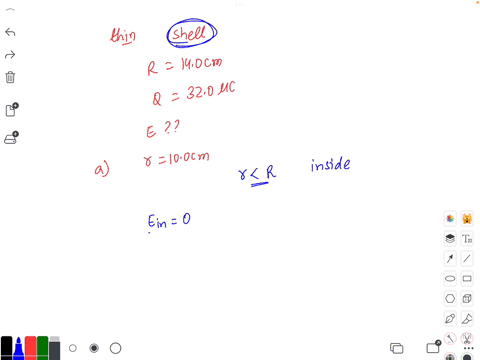 thin shell
R = 14.0cm
Q = 32.0 μC
E ??
a) r = 10.0cm
r < R inside
Ein = 0